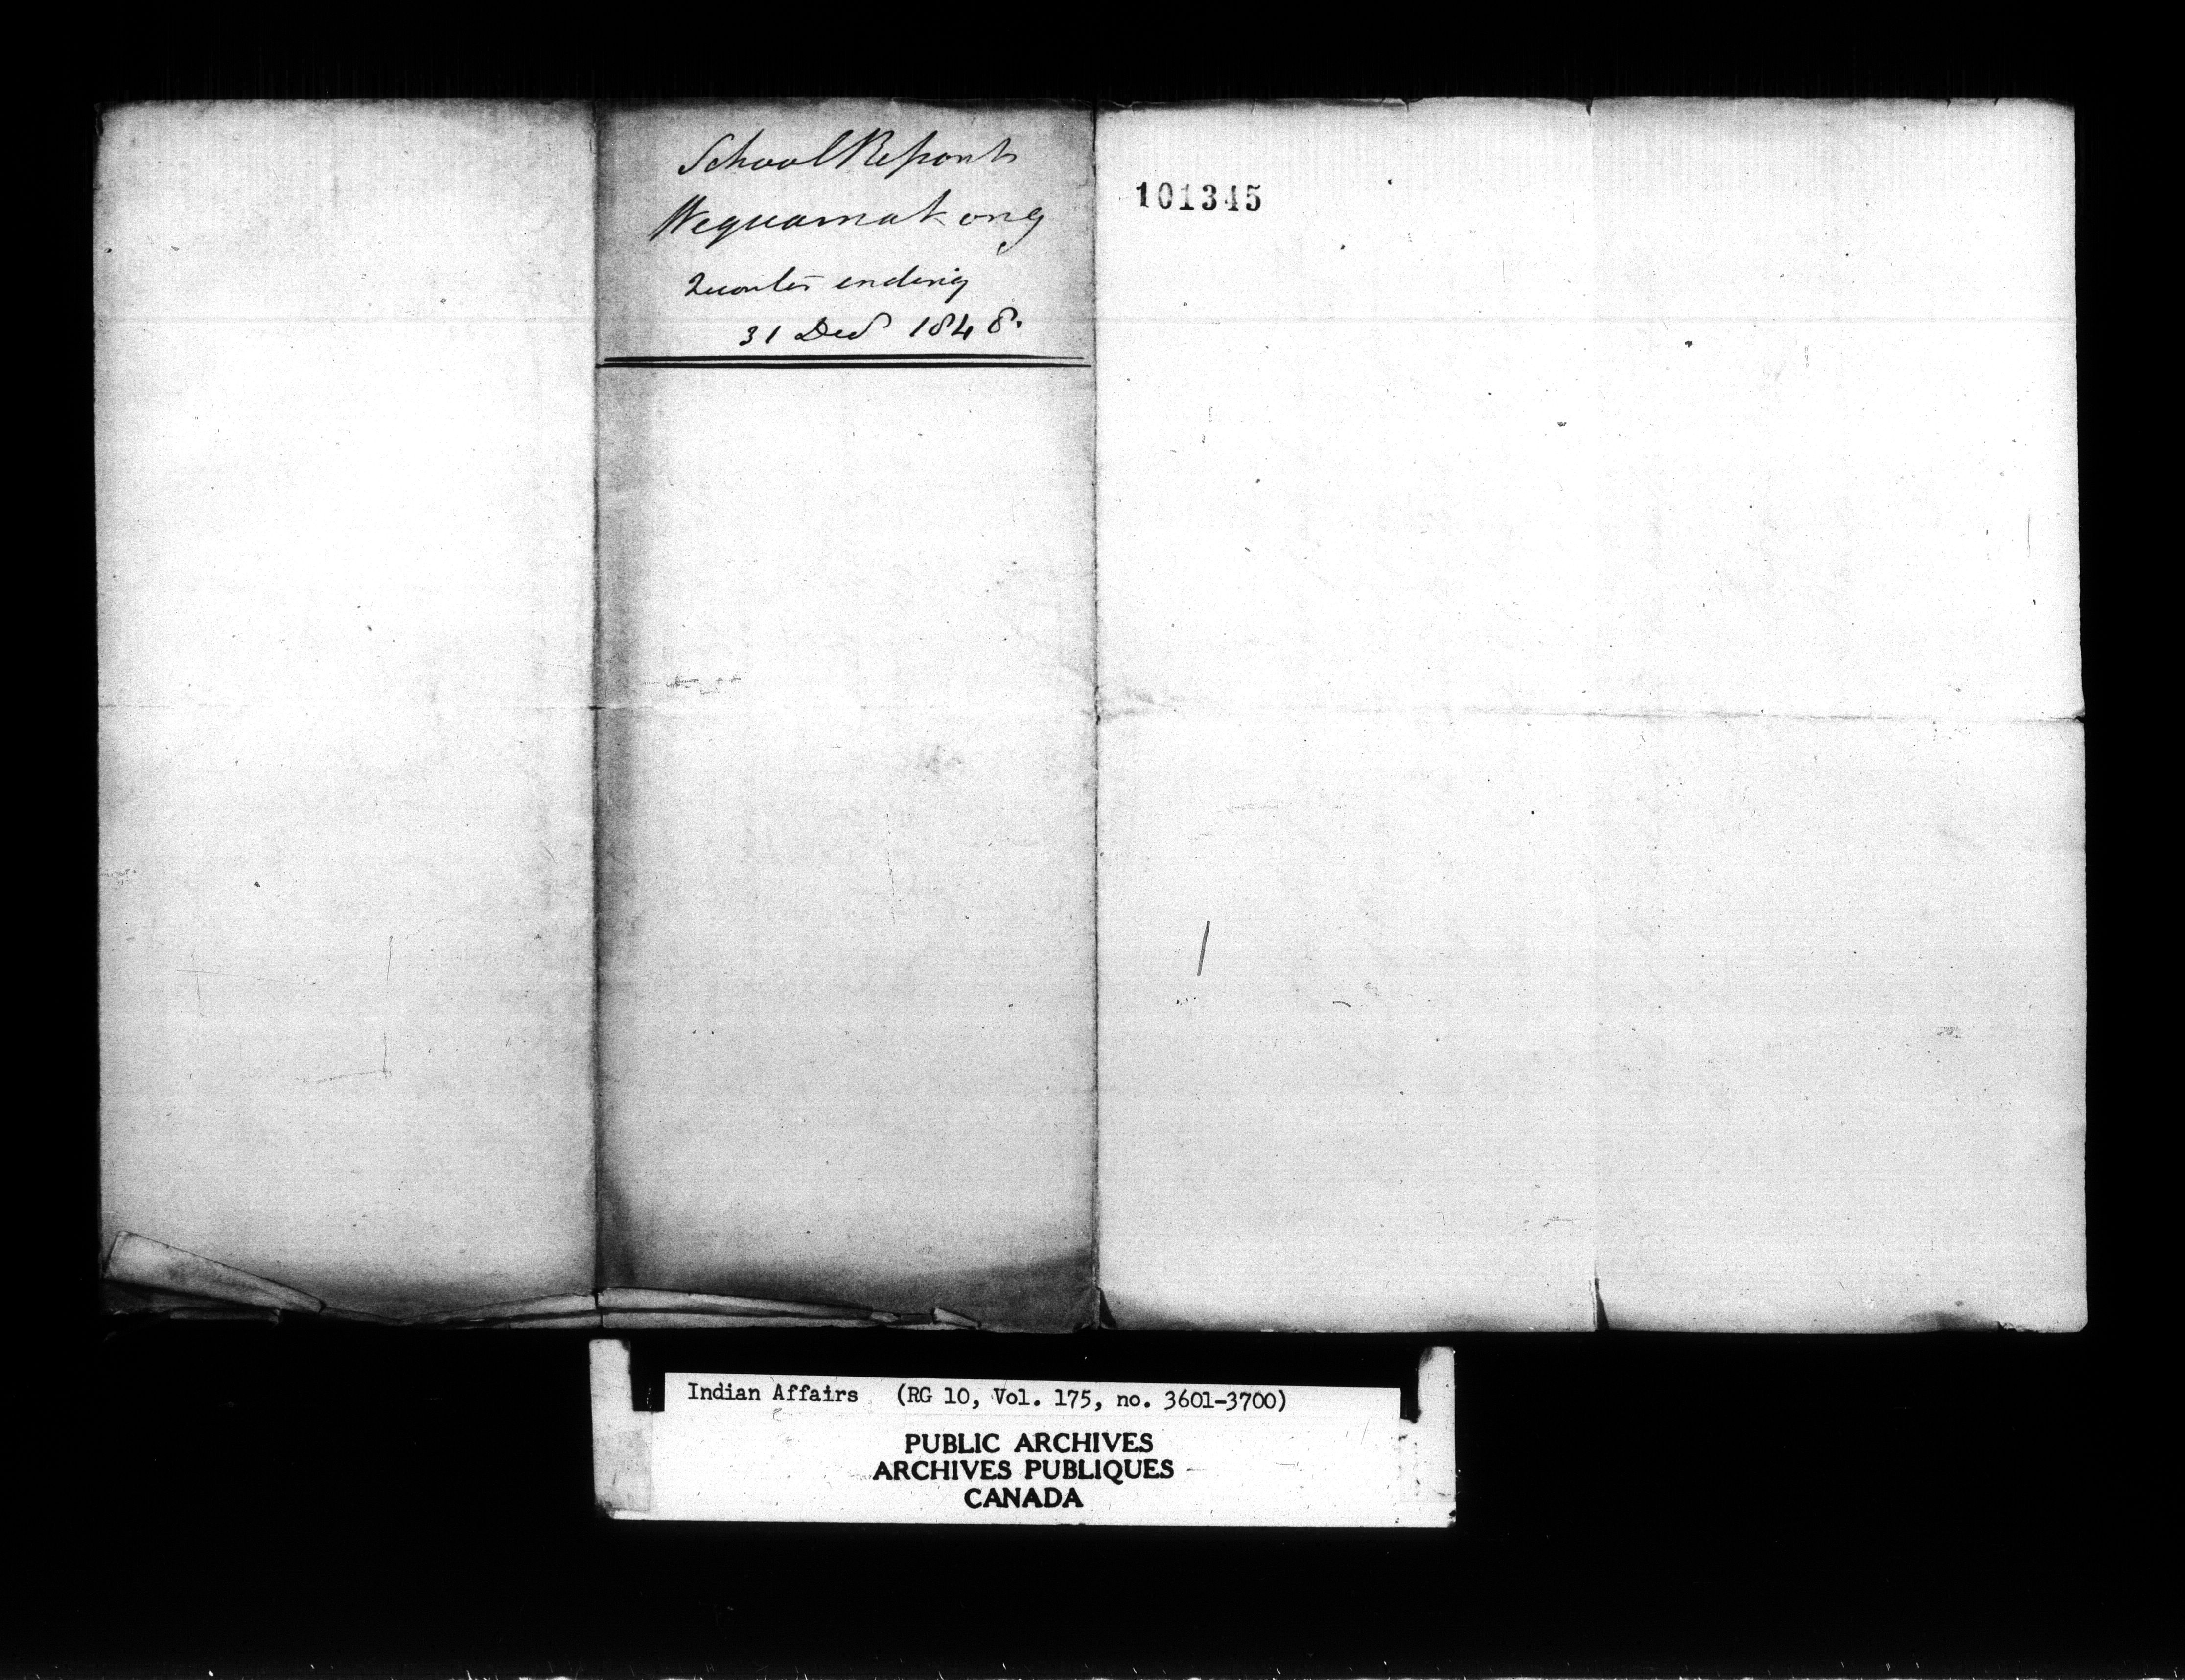 School Reports
Wequamakong
Quarter ending
31 Decr 1848.
101345
Indian Affairs (RG 10, Vol. 175, no. 3601-3700)
PUBLIC ARCHIVES
ARCHIVES PUBLIQUES
CANADA